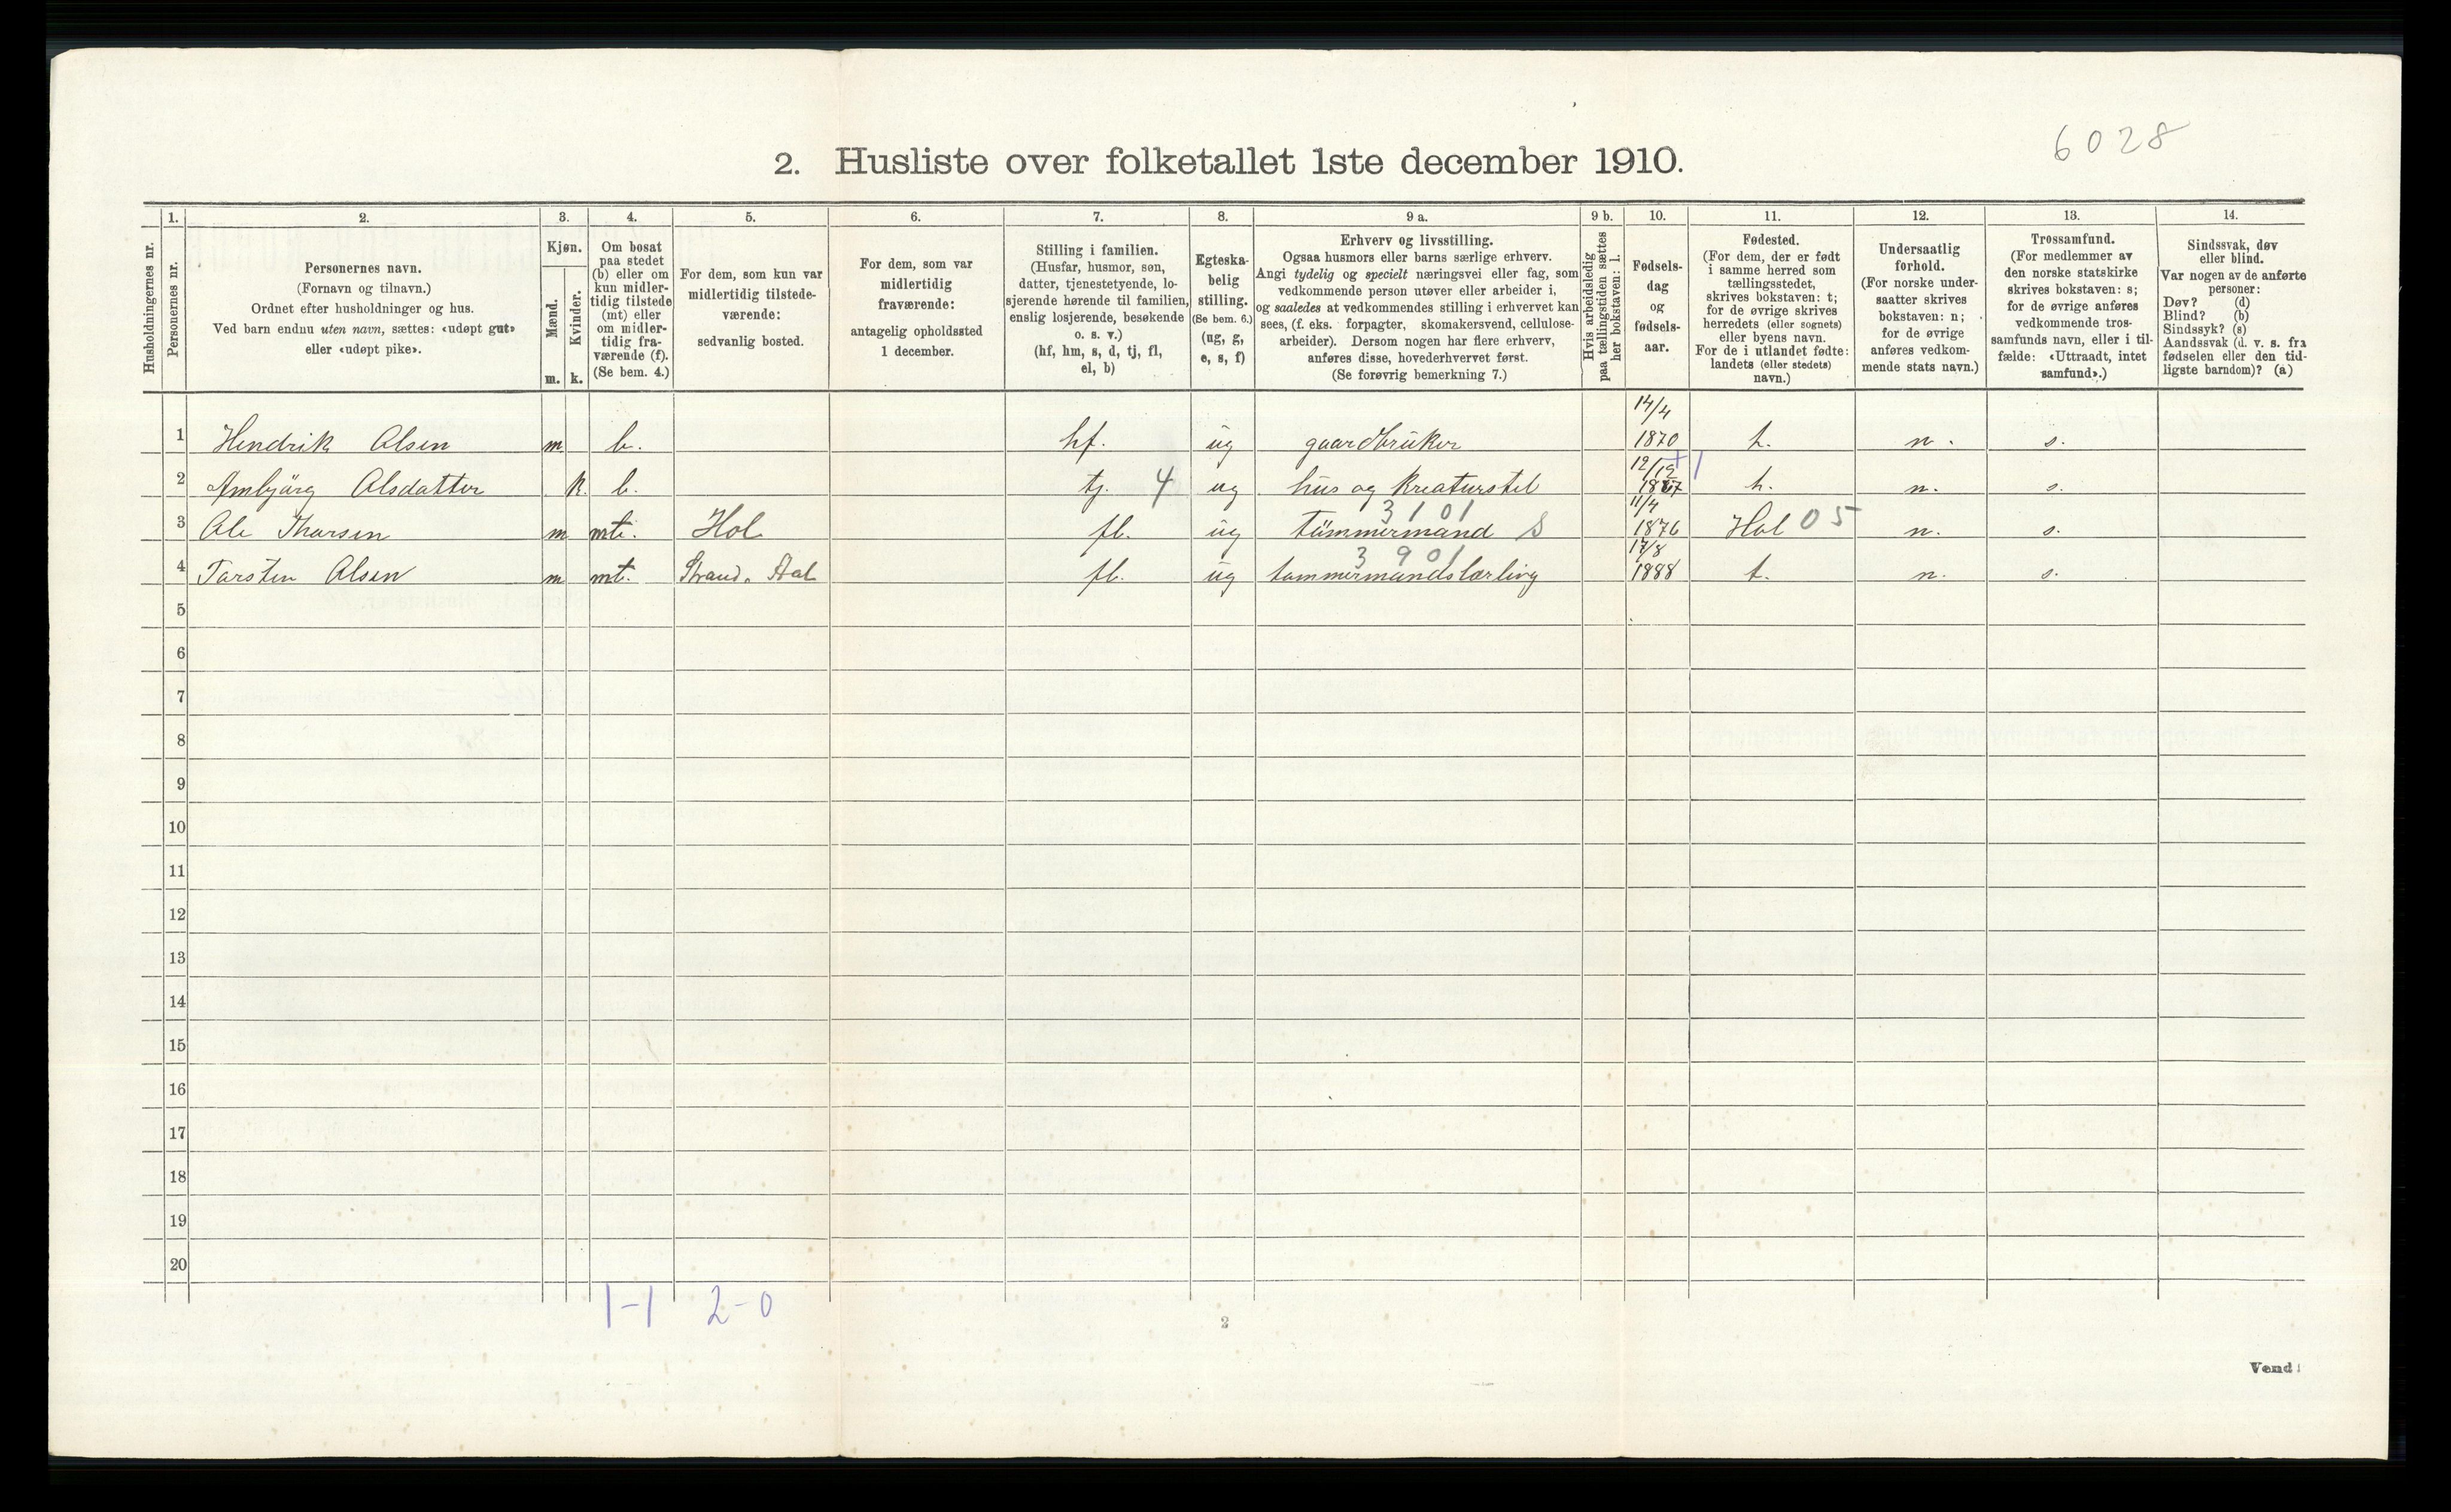 6028
2. Husliste over folketallet 1ste december 1910.
Husholdningernes nr.
1.
Personernes nr.
2.
Personernes navn.
(Fornavn og tilnavn.)
Ordnet efter husholdninger og hus.
Ved barn endnu uten navn, sættes: «udøpt gut»
eller «udøpt pike».
3.
Kjøn.
Mænd.
Kvinder.
m. k.
4.
Om bosat
paa stedet
(b) eller om
kun midler-
tidig tilstede
(mt) eller
om midler-
tidig fra-
værende (f).
(Se bem. 4.)
5.
For dem, som kun var
midlertidig tilstede-
værende:
sedvanlig bosted.
6.
For dem, som var
midlertidig
fraværende:
antagelig opholdssted
1 december.
7.
Stilling i familien.
(Husfar, husmor, søn,
datter, tjenestetyende, lo-
sjerende hørende til familien,
enslig losjerende, besøkende
o. s. v.)
(hf, hm, s, d, tj, fl,
el, b)
8.
Egteska-
belig
stilling.
(Se bem. 6.)
(ug, g,
e, s, f)
9 a.
Erhverv og livsstilling.
Ogsaa husmors eller barns særlige erhverv.
Angi tydelig og specielt næringsvei eller fag, som
vedkommende person utøver eller arbeider i,
og saaledes at vedkommendes stilling i erhvervet kan
sees, (f. eks. forpagter, skomakersvend, cellulose-
arbeider). Dersom nogen har flere erhverv,
anføres disse, hovederhvervet først.
(Se forøvrig bemerkning 7.)
9 b.
Hvis arbeidsledig
paa tællingstiden sættes
her bokstaven: l.
10.
Fødsels-
dag
og
fødsels-
aar.
11.
Fødested.
(For dem, der er født
i samme herred som
tællingsstedet,
skrives bokstaven: t;
for de øvrige skrives
herredets (eller sognets)
eller byens navn.
For de i utlandet fødte:
landets (eller stedets)
navn.)
12.
Undersaatlig
forhold.
(For norske under-
saatter skrives
bokstaven: n;
for de øvrige
anføres vedkom-
mende stats navn.)
13.
Trossamfund.
(For medlemmer av
den norske statskirke
skrives bokstaven: s;
for de øvrige anføres
vedkommende tros-
samfunds navn, eller i til-
fælde: «Uttraadt, intet
samfund».)
14.
Sindssvak, døv
eller blind.
Var nogen av de anførte
personer:
Døv? (d)
Blind? (b)
Sindssyk? (s)
Aandssvak (d. v. s. fra
fødselen eller den tid-
ligste barndom)? (a)
14/4
1 Hendrik Olsen m b. hf. ug gaardbruker 1870 t. n. s.
12/12 1
2 Ambjørg Olsdatter k. b. tj. 4 ug hus og kreaturstel t. n. s.
3101 11/4
3 Ole Tharsen m mt. Hol fl. ug Tømmermand S 1876 Hol 05 n. s.
3901 17/8
4 Tarsten Olsen m mt. Strand, Aal fl. ug tømmermandslærling 1888 t. n. s.
5
6
7
8
9
10
11
12
13
14
15
16
17
18
19
20
1-1 2-0
2
Vend!